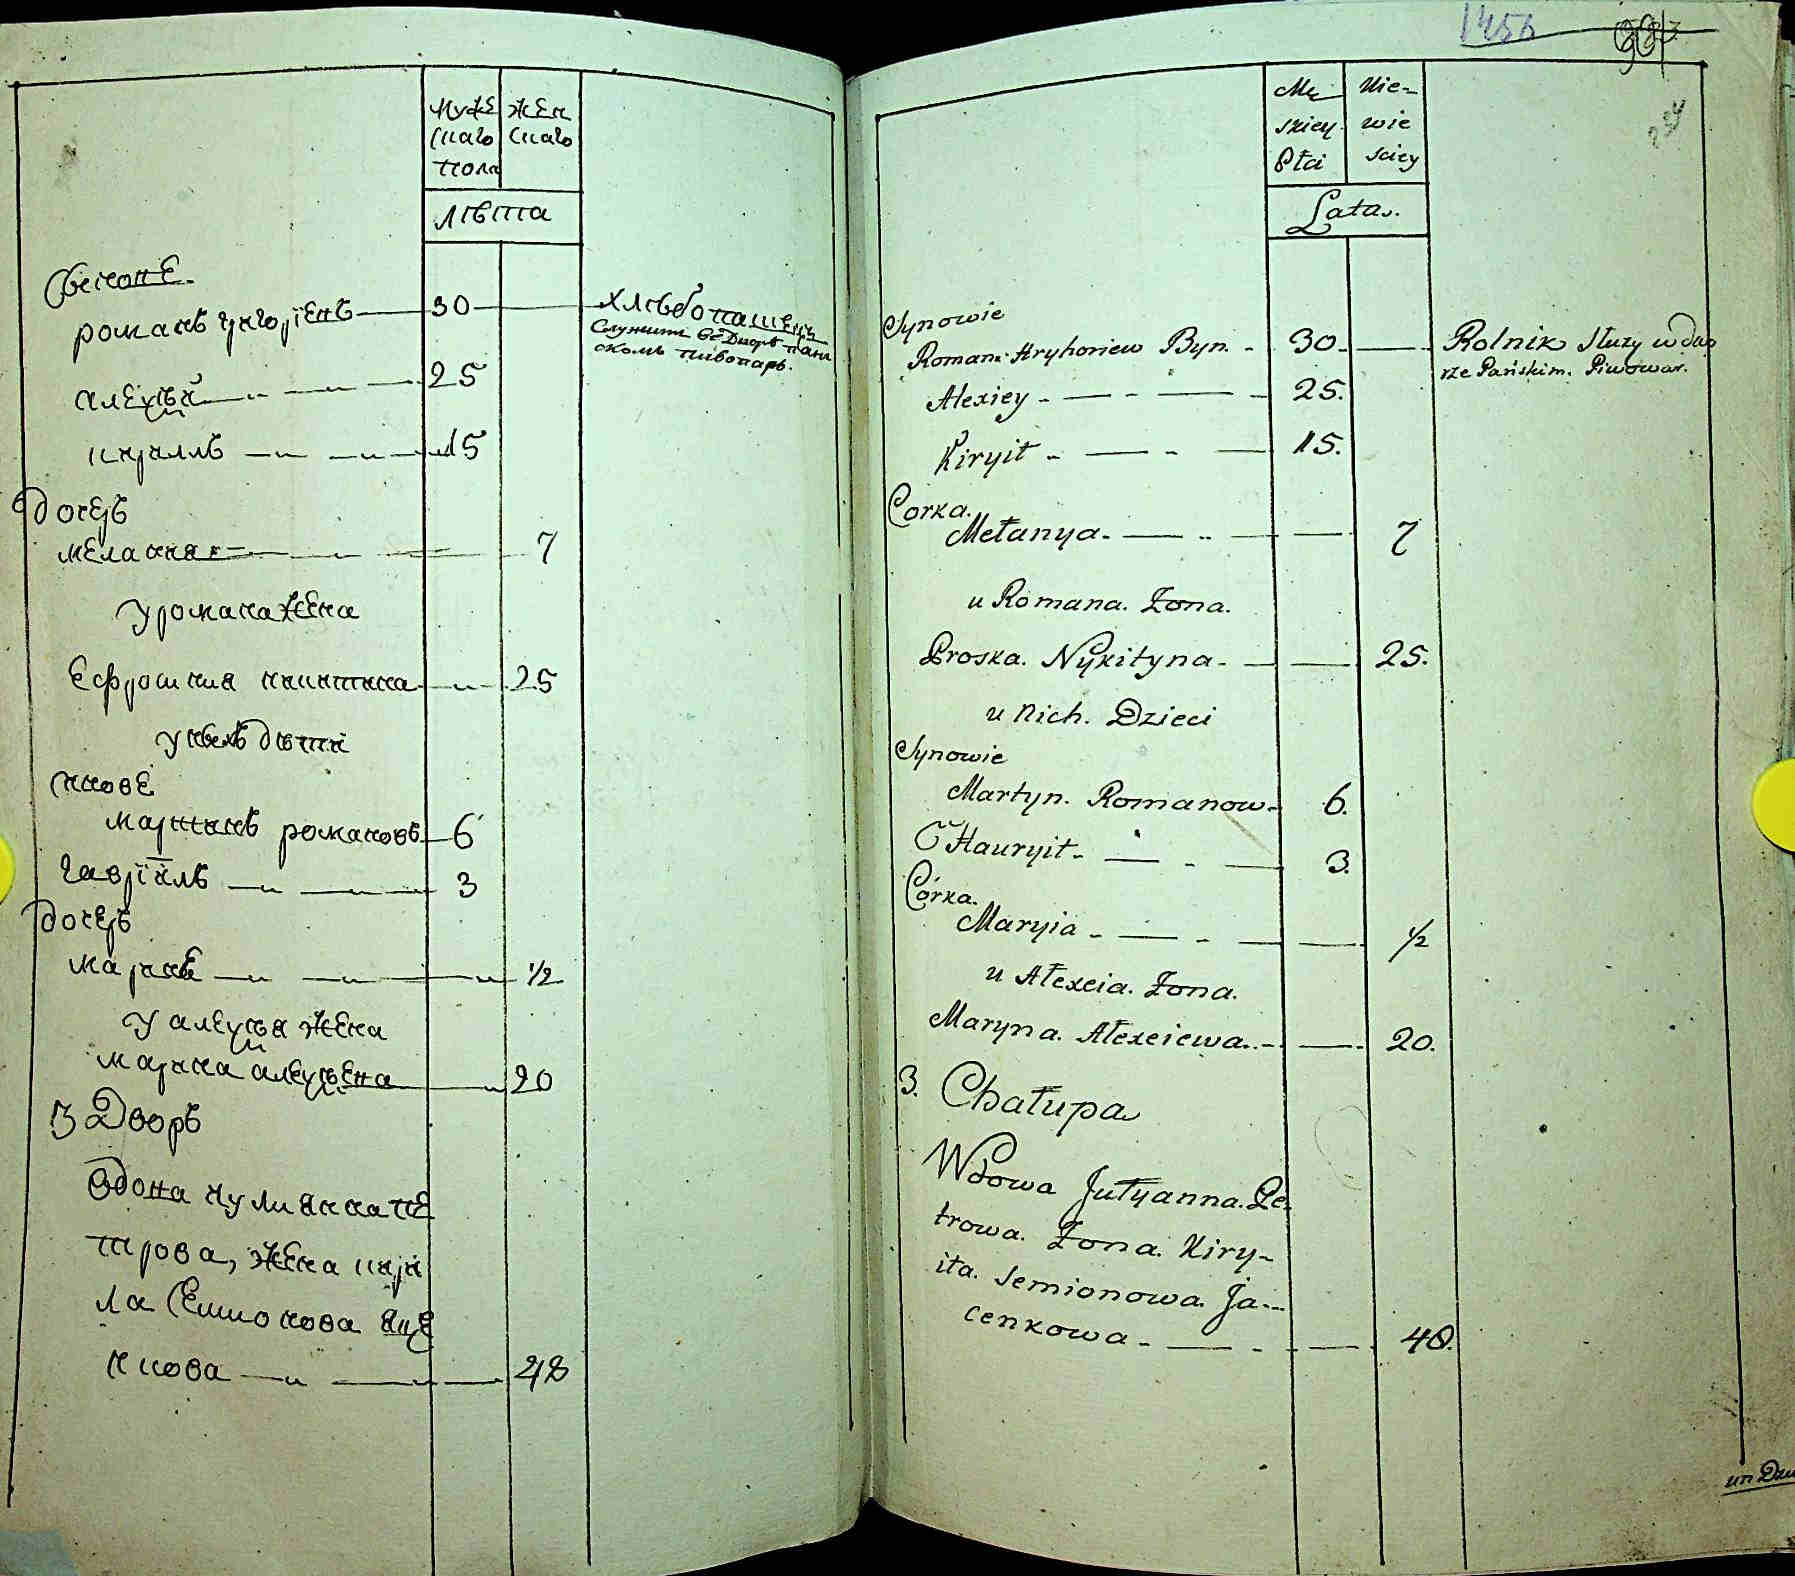 муже
скаго
пола
жен
скаго
лѣта
Сынове
романъ григорїевъ 30 хлѣбопашецъ
Служитъ въ Дворѣ пан
скомъ пивоваръ.
алеѯѣй 25
кирилъ 15
дочерь
мелания 7
у романа жена
Ефросиния никитина 25
у нихъ дѣти
мартинъ романовъ 6
гаврїилъ 3
дочерь
мария 1/2
у алеѯѣя жена
марина алеѯѣева 20
3 Дворъ
Вдова иулиянна пе
трова, жена кири
ла Семионова яце
нкова 48
1456
Mę
skiey
Płci
Nie-
wie
sciey
Lata.
Synowie
Roman Hryhoriew Byn. 30. Rolnik służy w dwo
rze Pańskim. Piwowar.
Alexiey 25.
Kiryił 15.
Corka.
Mełanya. 7
u Romana. Żona.
Proska. Nykityna 25.
u Nich. Dzieci
Synowie
Martyn. Romanow 6.
Hauryił 3.
Córka.
Maryia 1/2
u Ałexeia. Żona.
Maryna. Ałexeiewa. 20.
3. Chałupa
Wdowa Jułyanna. Pe-
trowa. Żona. Kiry-
iła. Semionowa. Ja-
cenkowa 48.